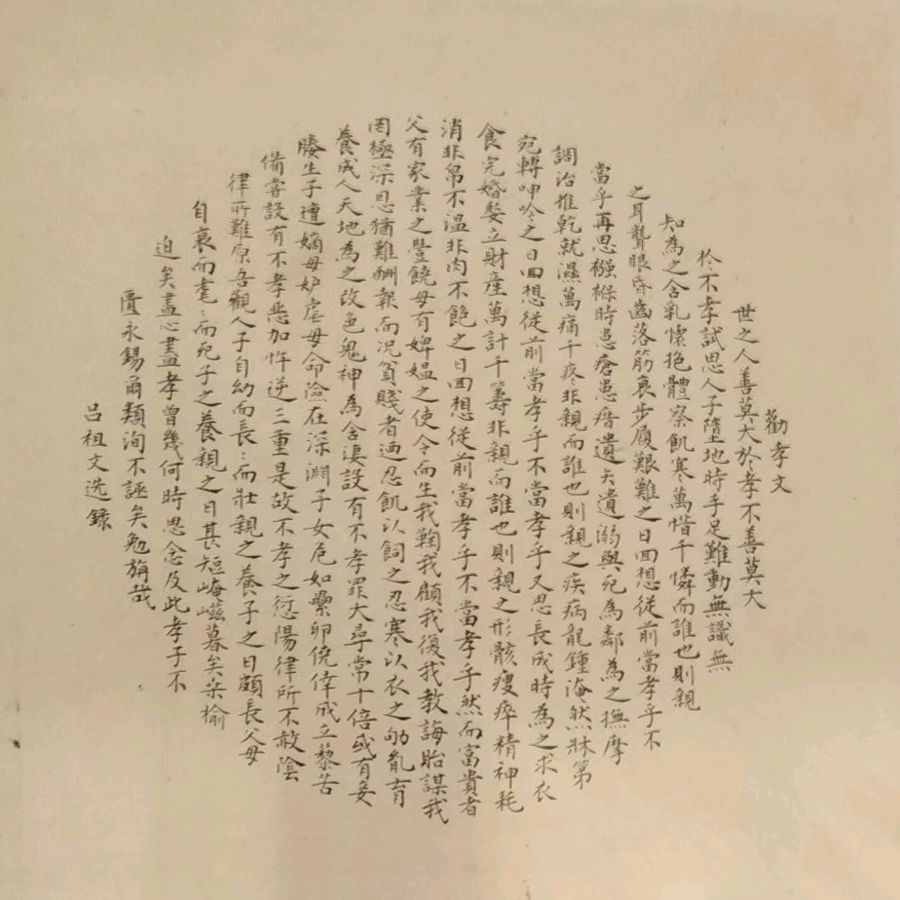 勸孝文
世之人善莫大於孝不善莫大
於不孝試思人子墮地時手足難動無識無
知為之含乳懷抱體察飢寒萬惜千憐而誰也則親
之耳聾眼昏齒落筋衰步履艱難之日回想從前當孝乎不
當乎再思襁褓時患瘡患瘄遺矢遺溺與死為鄰為之撫摩
調治推乾就濕萬痛千疼非親而誰也則親之疾病龍鍾淹然牀第
宛轉呻吟之日回想從前當孝乎不當孝乎又思長成時為之求衣
食完婚娶立財產萬計千籌非親而誰也則親之形骸瘦瘁精神耗
消非帛不溫非肉不飽之日回想從前當孝乎不當孝乎然而富貴者
父有家業之豐饒母有婢媼之使令而生我鞠我顧我復我教誨貽謀我
罔極深恩猶難酬報而況貧賤者迺忍飢以飼之忍寒以衣之劬亂育
養成人天地為之改色鬼神為含淒設有不孝罪大尋常十倍或有妾
媵生子遭嫡母妒虐母命險在深淵子女危如纍卵僥倖成立藜苦
備嘗設有不孝惡加忤逆三重是故不孝之愆陽律所不赦陰
律所難原吾觀人子自幼而長〻而壯親之養子之日頗長父母
自衰而耄〻而死子之養親之日甚短崦嵫暮矣桑榆
迫矣盡心盡孝曾幾何時思念及此孝子不
匱永錫爾類洵不誣矣勉旃哉
呂祖文選錄